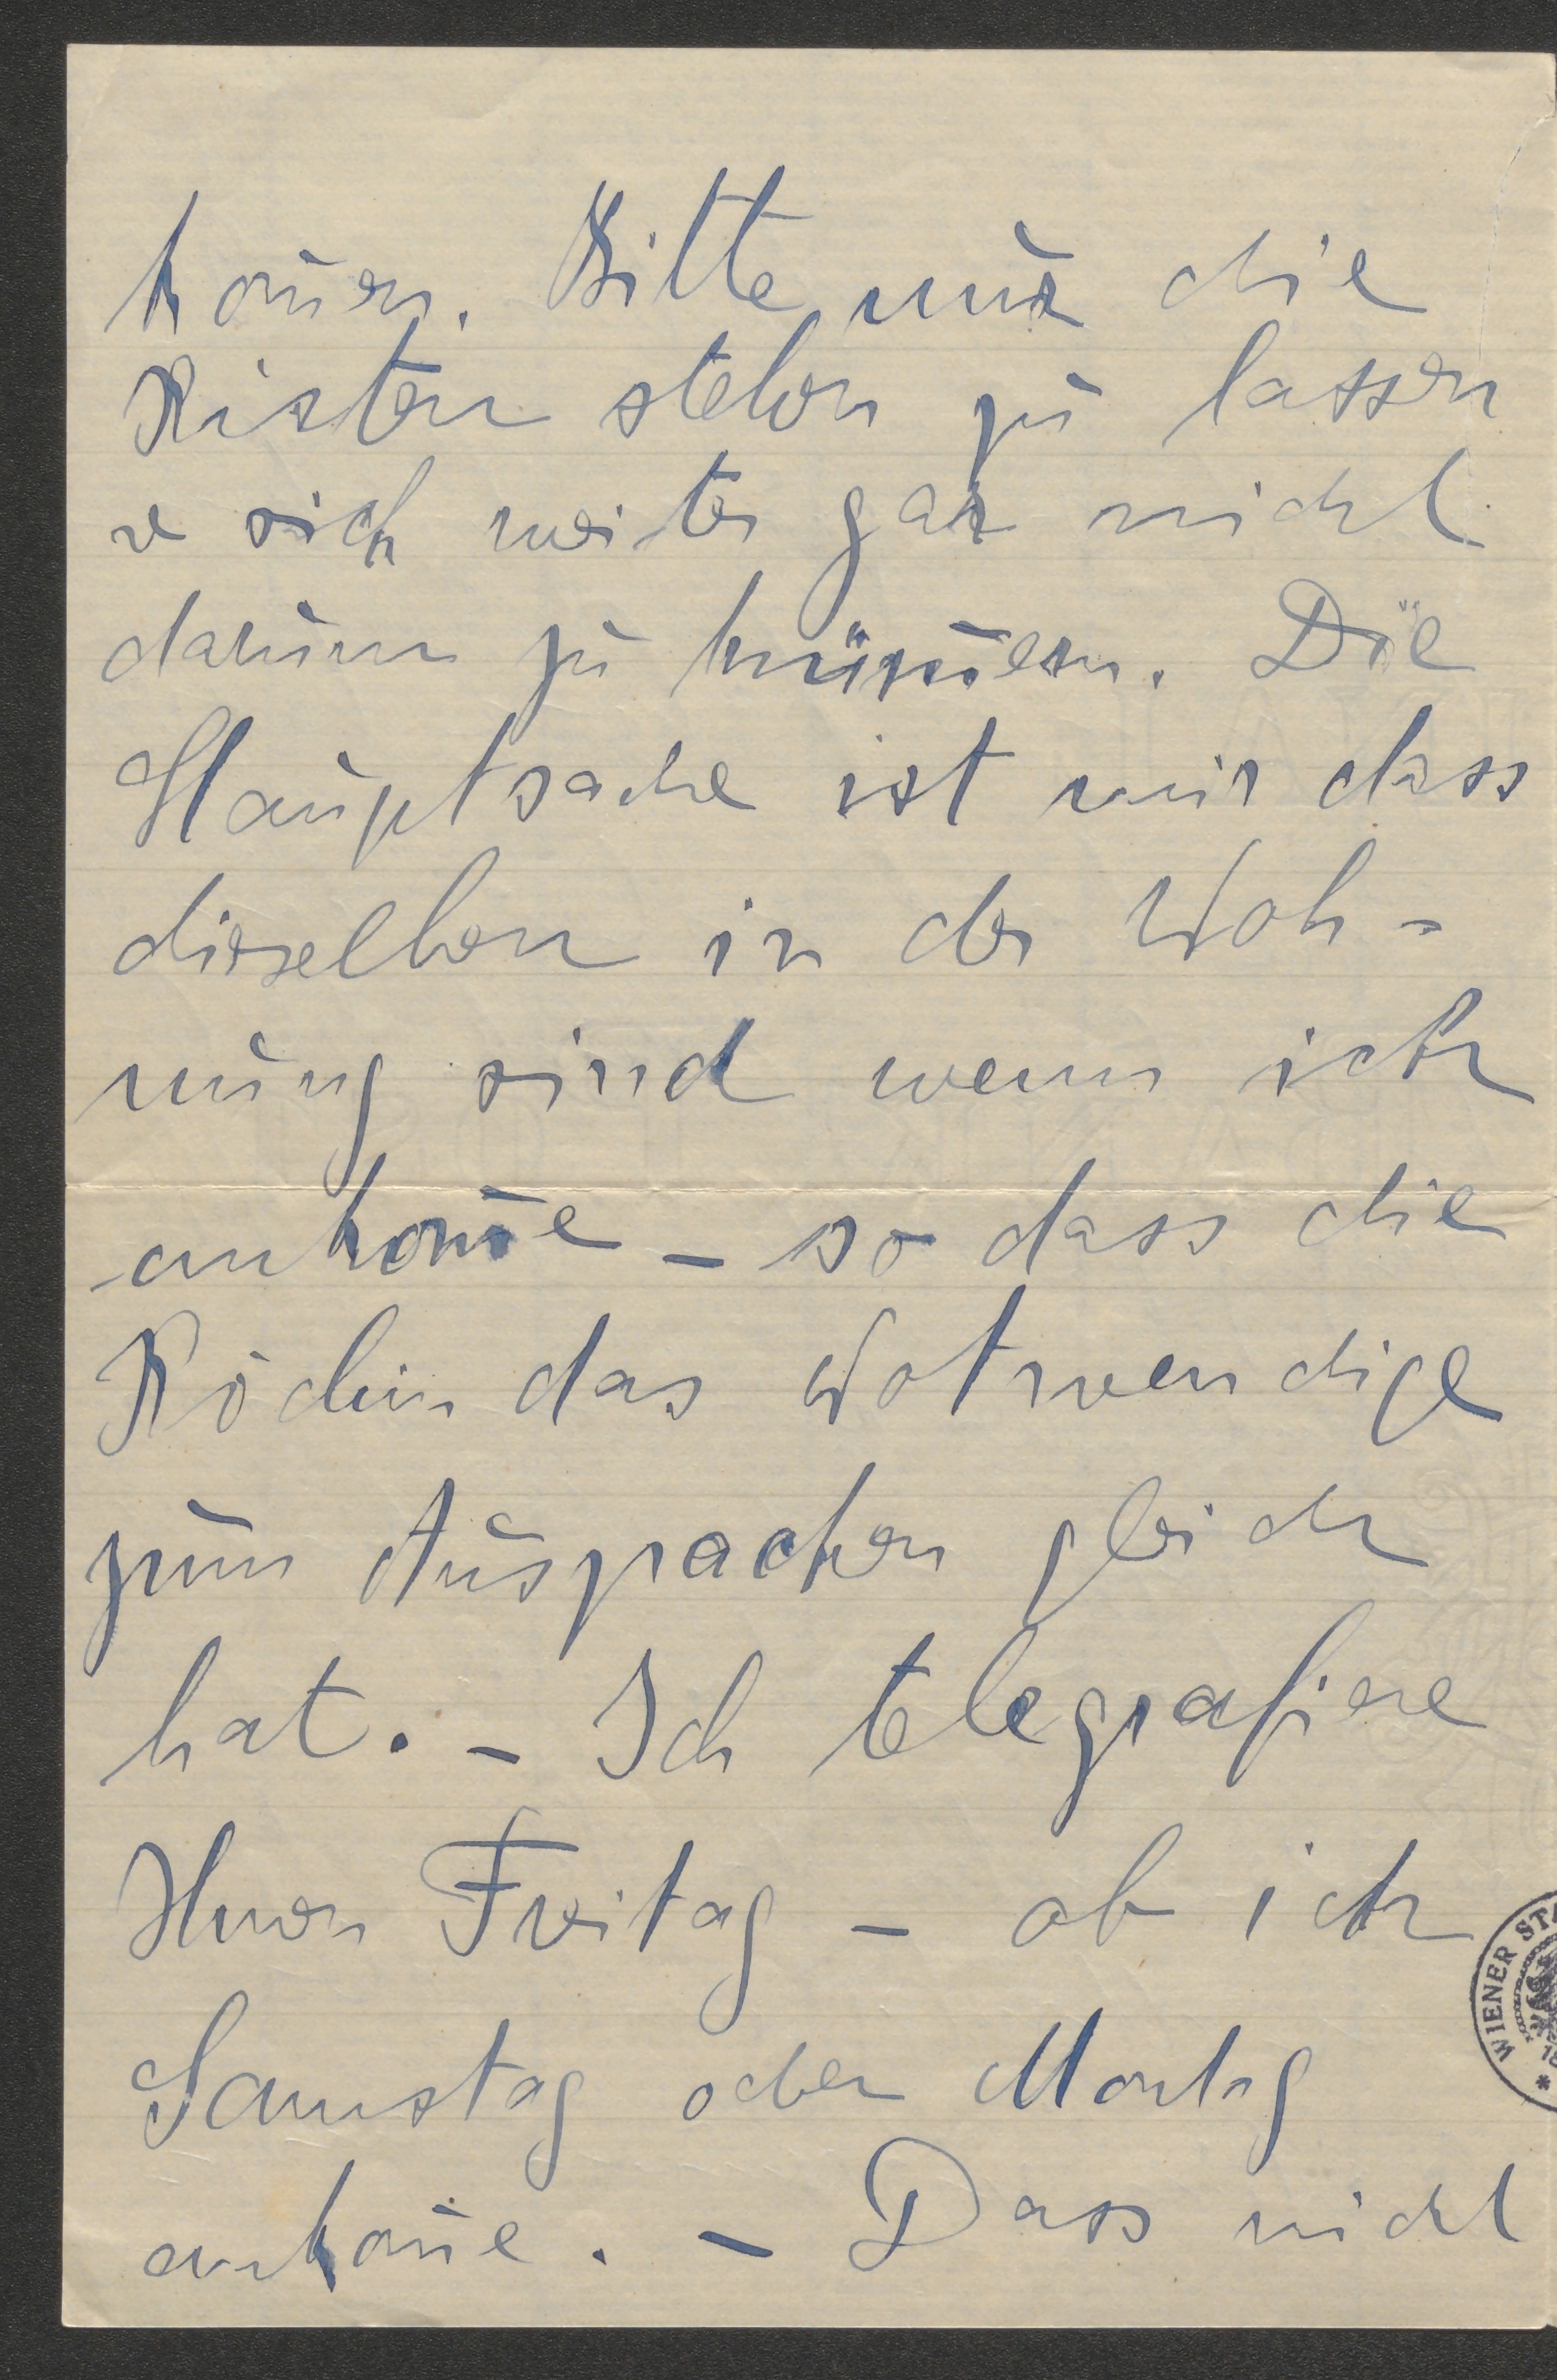 kom̅en. Bitte nur die
Kisten stehen zu lassen
u sich weiter gar nicht
darum zu küm̅ern. Die
Hauptsache ist mir dass
dieselben in der Woh-
nung sind wenn ich
ankom̅e – so dass die
Köchin das Notwendige
zum Auspacken gleich
hat. – Ich telegrafiere
Ihnen Freitag – ob ich
Samstag oder Montag
ankom̅e. – Dass nicht
WIENER